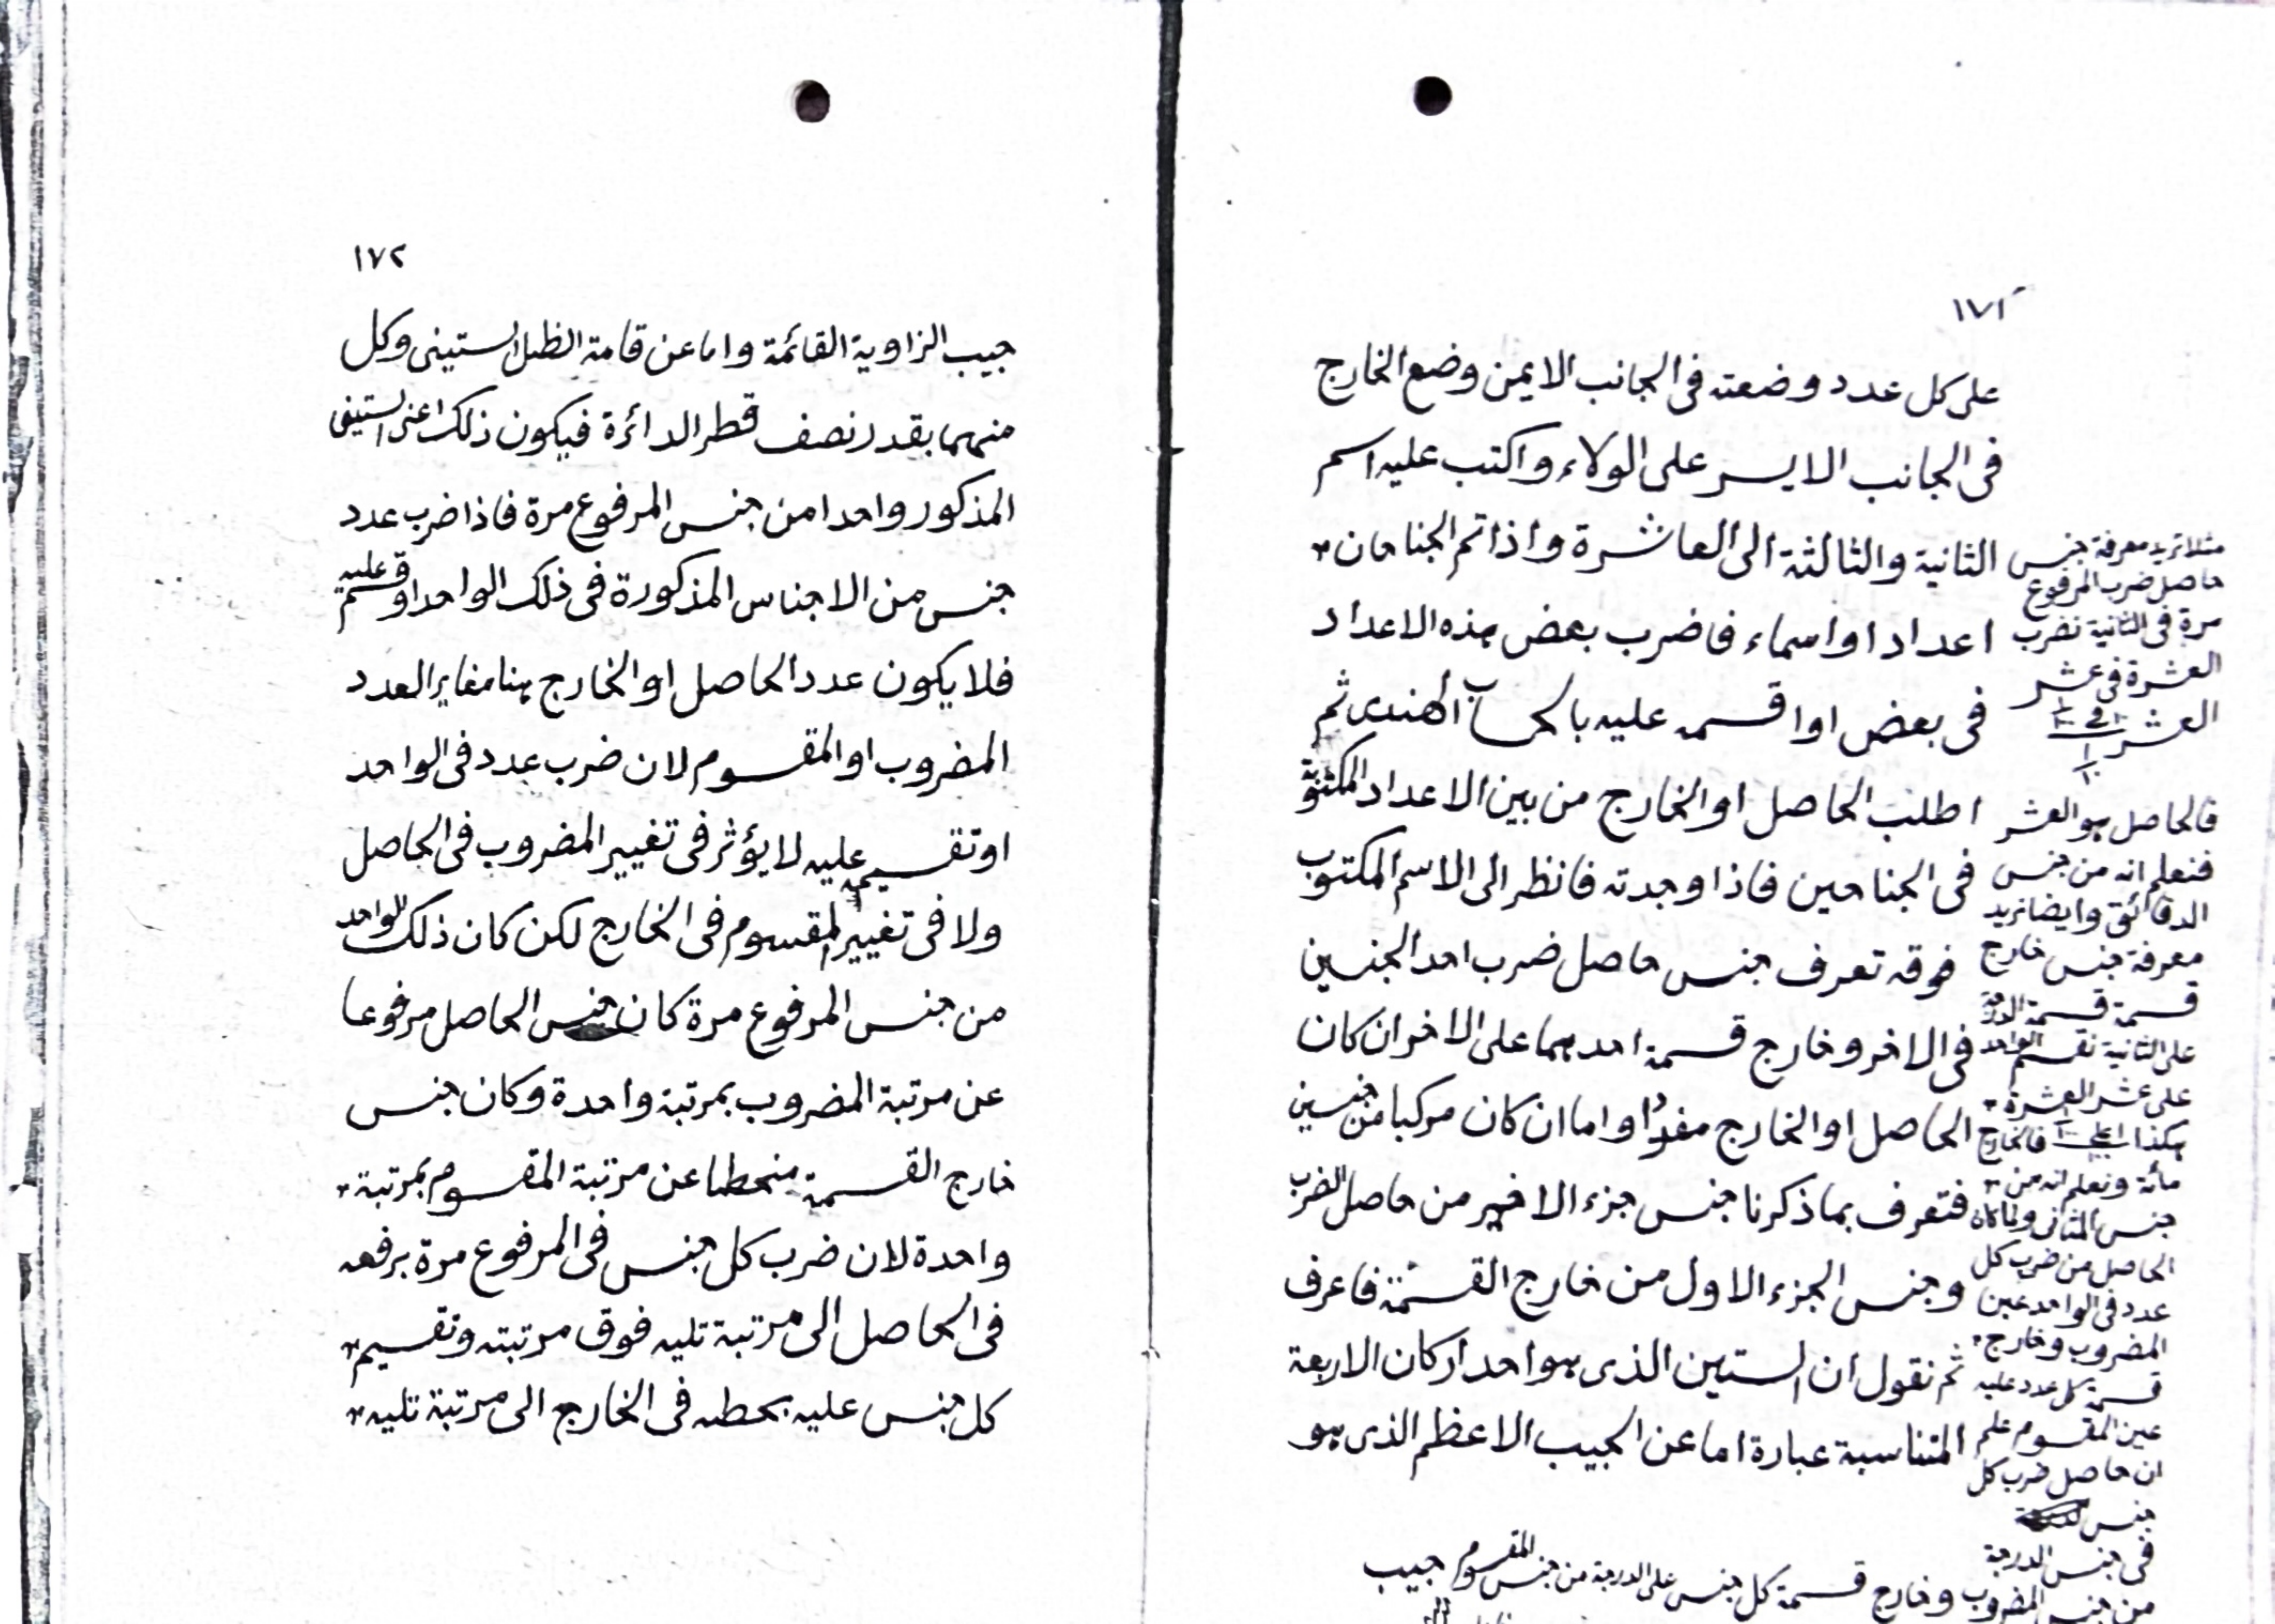 ١٧١
على كل عدد وضعته فى الجانب الايمن وضع الخارج
فى الجانب الايسر على الولاء واكتب عليه اسم
الثانية والثالثة الى العاشرة واذا تم الجناحان
اعدادا واسماء فاضرب بعض هذه الاعداد
فى بعض او اقسمه عليه بالحساب الهندى ثم
اطلب الحاصل او الخارج من بين الاعداد المكتوبة
فى الجناحين فاذا وجدته فانظر الى الاسم المكتوب
فوقه تعرف جنس حاصل ضرب احد الجنسين
فى الاخر وخارج قسمة احدهما على الاخر ان كان
الحاصل او الخارج مفردا واما ان كان مركبا من جنسين
فتعرف بما ذكرنا جنس جزء الاخير من حاصل الضرب
وجنس الجزء الاول من خارج القسمة فاعرف
ثم نقول ان الستين الذى هو احد اركان الاربعة
المتناسبة عبارة اما عن الجيب الاعظم الذى هو
جيب
مثلا نريد معرفة جنس
حاصل ضرب المرفوع
مرة فى الثانية نضرب
العشرة فى عشر
العشر
فالحاصل هو العشر
فنعلم انه من جنس
الدقائق وايضا نريد
معرفة جنس خارج
قسمة قسمة الدرجة
على الثانية نقسم الواحد
على عشر العشرة
هكذا فالخارج
مأة ونعلم انه من
جنس المثانى ولما كان
الحاصل من ضرب كل
عدد فى الواحد عين
المضروب وخارج
قسمة كل عدد عليه
عين المقسوم علم
ان حاصل ضرب كل
جنس
فى جنس الدرجة
من جنس المضروب وخارج قسمة كل جنس على الدرجة من جنس المقسوم
١٧٢
جيب الزاوية القائمة واما عن قامة الظل الستينى وكل
منهما بقدر نصف قطر الدائرة فيكون ذلك اعنى الستينى
المذكور واحدا من جنس المرفوع مرة فاذا ضرب عدد
جنس من الاجناس المذكورة فى ذلك الواحد او قسم عليه
فلا يكون عدد الحاصل او الخارج هنا مغاير العدد
المضروب او المقسوم لان ضرب عدد فى الواحد
او تقسيمه عليه لا يؤثر فى تغيير المضروب فى الحاصل
ولا فى تغيير المقسوم فى الخارج لكن كان ذلك الواحد
من جنس المرفوع مرة كان جنس الحاصل مرفوعا
عن مرتبة المضروب بمرتبة واحدة وكان جنس
خارج القسمة منحطا عن مرتبة المقسوم بمرتبة
واحدة لان ضرب كل جنس فى المرفوع مرة برفعه
فى الحاصل الى مرتبة تليه فوق مرتبته وتقسيم
كل جنس عليه بحطه فى الخارج الى مرتبة تليه